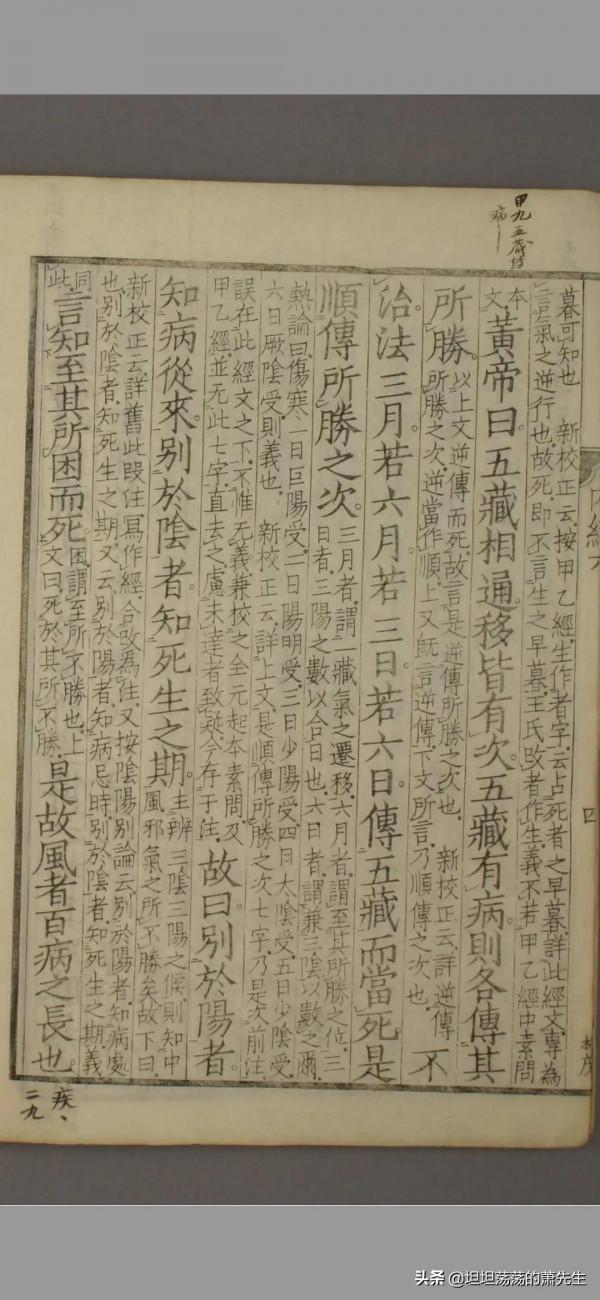 甲九五藏傳
病
四
暮可知也　新校正云按甲乙經生作者字云占死者之早暮詳此經文專為
言氣之逆行也故死即不言生之早暮王氏改者作生義不若甲乙經中素問
本文黃帝曰五藏相通移皆有次五藏有病則各傳其
所勝以上文逆傳而死故言是逆傳所勝之次也　新校正云詳逆傳所勝之次逆當作順上又既言逆傳下文所言乃順傳之次也不
治法三月若六月若三日若六日傳五藏而當死是
順傳所勝之次三月者謂一藏氣之遷移六月者謂至其所勝之位三日者三陽之數以合日也六日者謂兼三陰以數之爾
熱論曰傷寒一日巨陽受二日陽明受三日少陽受四日太陰受五日少陰受
六日厥陰受則義也　新校正云詳上文是順傳所勝之次七字乃是次前注
誤在此經文之下不惟无義兼校之全元起本素問及甲乙經並无此七字直去之慮未達者致疑今存于注故曰別於陽者
知病從來別於陰者知死生之期主辨三陰三陽之候則知中風邪氣之所不勝矣故下曰
新校正云詳舊此段注寫作經合改為注又按陰陽別論云別於陽者知病處
也別於陰者知死生之期又云別於陽者知病忌時別於陰者知死生之期義
同此言知至其所困而死困謂至所不勝也上文曰死於其所不勝是故風者百病之長也
疾、
二九
头条 @坦坦荡荡的萧先生